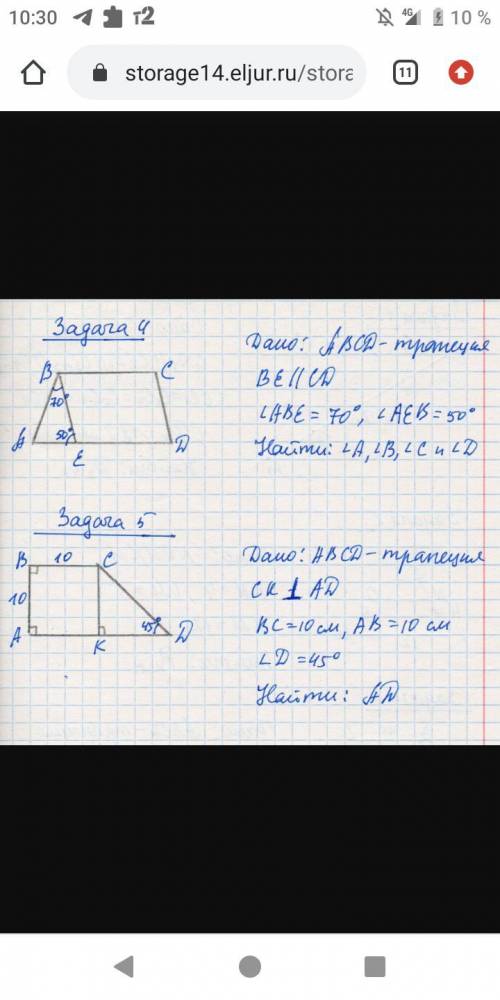 10:30 т2 4G 10 %
storage14.eljur.ru/stora 11
Задача 4
B C
70°
50°
A E D
Дано: ABCD-трапеция
BE || CD
∠ABE = 70°, ∠AEB = 50°
Найти: ∠A, ∠B, ∠C и ∠D
Задача 5
B 10 C
10
45°
A K D
Дано: ABCD-трапеция
CK ⊥ AD
BC = 10 см, AB = 10 см
∠D = 45°
Найти: AD